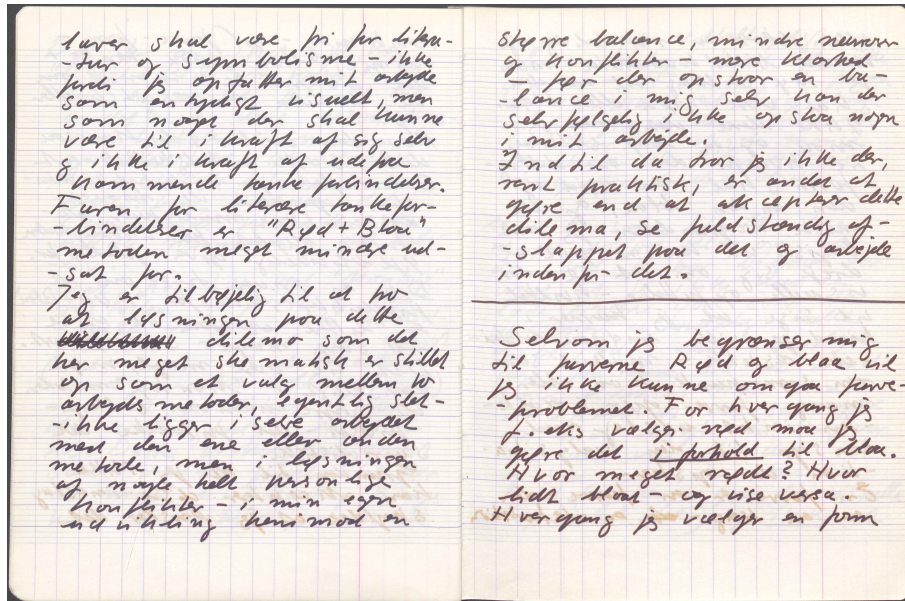 laver skal være fri for littera-
-tur og symbolisme – ikke
fordi jeg opfatter mit arbejde
som entydigt visuelt, men
som noget der skal kunne
være til i kraft af sig selv
og ikke i kraft af udefra
kommende tankeforbindelser.
Faren for literære tankefor-
-bindelser er "Rød + Blaa"
metoden meget mindre ud-
-sat for.
Jeg er tilbøjelig til at tro
at løsningen paa dette
dilema som det
her meget skematisk er stillet
op som et valg mellem to
arbejdsmetoder, egentlig slet-
-ikke ligger i selve arbejdet
med den ene eller anden
metode, men i løsningen
af nogle helt personlige
konflikter – i min egen
udvikling henimod en
større balance, mindre neuroser
og konflikter – mere klarhed
– før der opstaar en ba-
-lance i mig selv kan der
selvfølgelig ikke opstaa nogen
i mit arbejde.
Indtil da tror jeg ikke der,
rent praktisk, er andet at
gøre end at akceptere dette
dilema, se fuldstændig af-
-slappet paa det og arbejde
inden for det.
Selvom jeg begrænser mig
til farverne Rød og blaa vil
jeg ikke kunne omgaa farve-
-problemet. For hver gang jeg
f. eks vælger rød maa jeg
gøre det i forhold til blaa.
Hvor meget rødt? Hvor
lidt blaat – og vise versa.
Hver gang jeg vælger en form